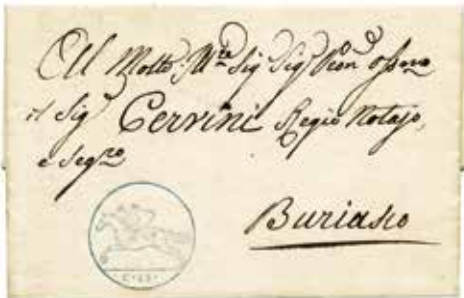 Al Molto Ill.re Sig.r Sig.r Pron.e Oss.mo
il Sig.r Cervini Regio Notajo,
e Seg.ro
Buriasco
C. 15